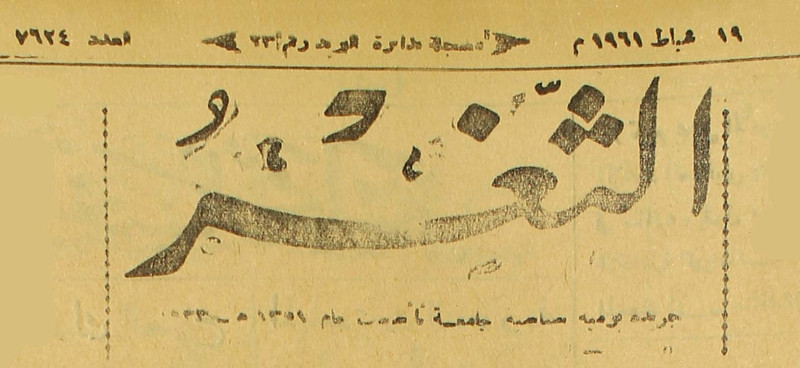 ١٩ شباط ١٩٦١ م مسجلة بدائرة البريد رقم ٢٣ العدد ٧٦٢٤
الثَّغْرُ
جريدة يومية سياسية جامعة تأسست عام ١٣٥١ هـ